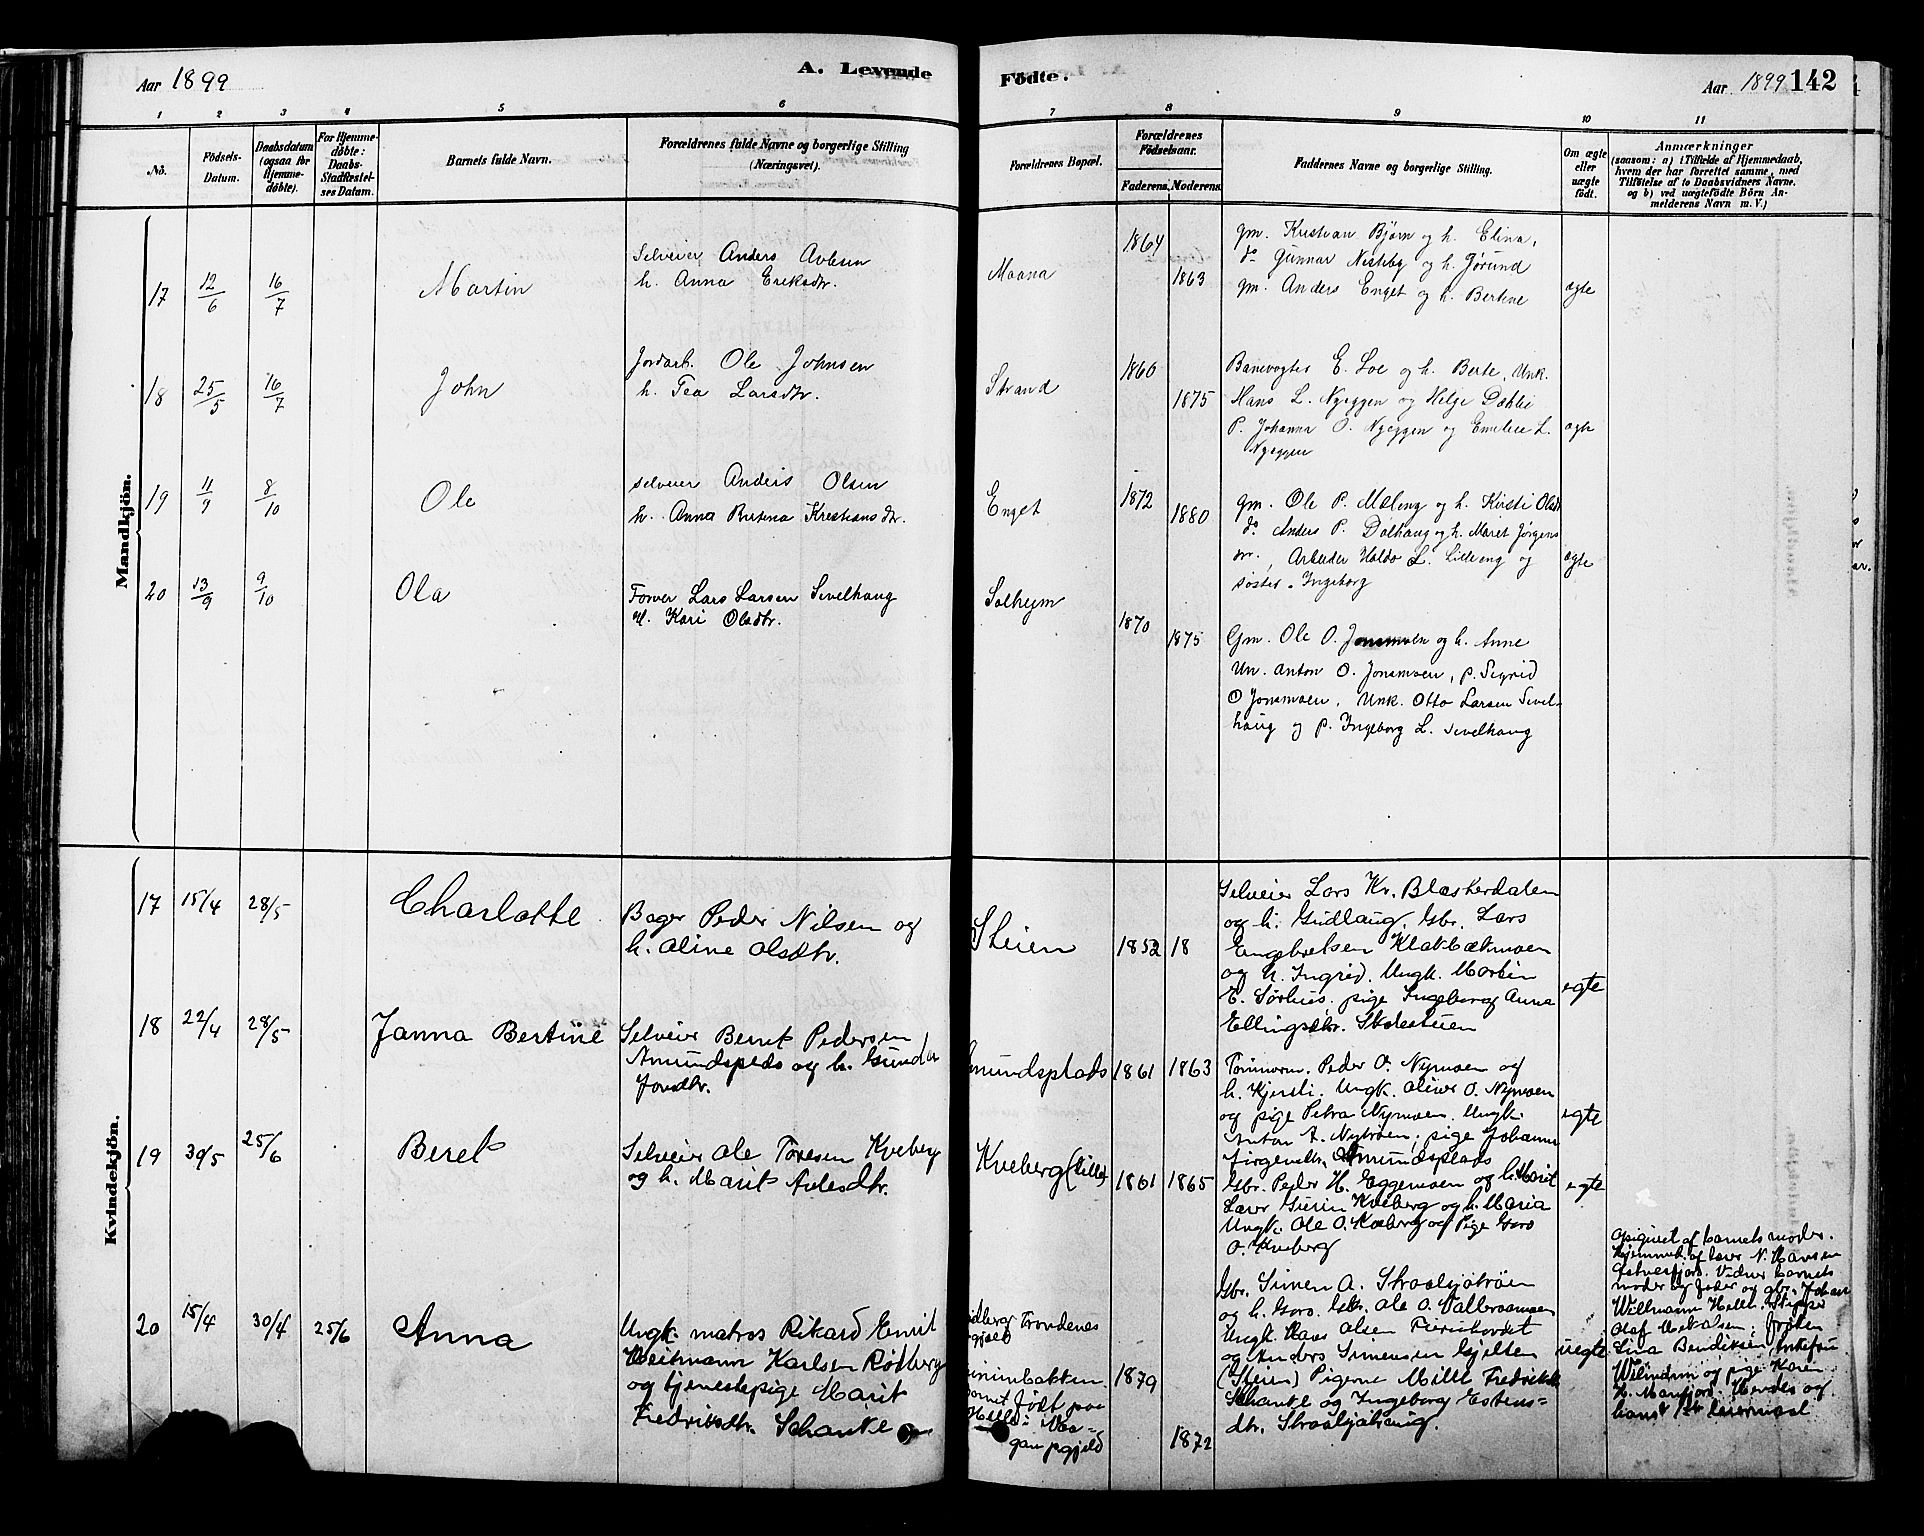 Aar 1899
A. Levende
Födte.
Aar 1899 142
1 2 3 4 5 6 7 8 9 10 11
No.
Födsels-Datum.
Daabsdatum (ogsaa for Hjemme-döbte).
For Hjemme-döbte: Daabs-Stadfæstelses Datum.
Barnets fulde Navn.
Forældrenes fulde Navne og borgerlige Stilling
(Næringsvei).
Forældrenes Bopæl.
Forældrenes Födselsaar.
Faderens. Moderens.
Faddernes Navne og borgerlige Stilling.
Om ægte eller uægte födt.
Anmærkninger
(saasom: a) i Tilfælde af Hjemmedaab,
hvem der har forrettet samme, med
Tilföielse af to Daabsvidners Navne.
og b) ved uægtefödte Börn An-
melderens Navn m. V.)
Mandkjön.
17 12/6 16/7 Martin
Selveier Anders Avlesen
h. Anna Eriksdtr.
Moana
1864
1863
gm. Kristian Bjørn og h. Elina,
do Gunnar Nesteby og h. Jørund
gm. Anders Enget og h. Bertine
ægte
18 25/5 16/7 John
Jordarb. Ole Johnsen
h. Tea Larsdtr.
Strand
1860
1875
Banevogter E. Loe og h. Berte, Unk.
Hans L. Nyeggen og Helge Døhli
P. Johanna O. Nyeggen og Emilie L.
Nyeggen
ægte
19 11/9 8/10 Ole
selveier Anders Olsen
h. Anna Bertina Kristiansdtr.
Enget
1872
1880
gm. Ole P. Moleng og h. Kirsti Olsdt
do Anders P. Dølhaug og h. Maret Jørgens
dtr., Arbeider Haldo L. Lilleeng og
søster Ingeborg
ægte
20 13/9 9/10 Ola
Forver Lars Larsen Sivelhaug
H. Kari Olsdtr.
Solheym
1870
1875
Gm. Ole O. Jonsmoen og h. Anne
Un. Anton O. Jonsmoen, p. Sigrid
O Jonsmoen, Unk. Otto Larsen Sivel-
haug og p. Ingeborg L. Sivelhaug
Kvindekjön.
17 15/4 28/5 Charlotte
Bager Peder Nilsen og
h. Aline Olsdtr.
Steien
1852 18
Selveier Lars Kr. Blæsterdalen
og h. Gudlaug. Gbr. Lars
Engebretsen Klokbækmoen
og h. Ingrid. Ungk. Morten
E. Sørhus. pige Ingeborg Anna
Ellingsdtr. Stolesteien
egte
18 22/4 28/5 Janna Bertine
Selveier Bernt Pedersen
Amundsplads og h. Gunda
Jonsdtr.
munds plads
1861 1863
Peder O. Nymoen og
h. Kjersti. Ungk. Oliver O. Nymoen
og pige Petra Nymoen. Ungk.
Anton A. Nybroen, pige Johanna
Jørgensdtr. Amundsplads
egte
19 30/5 25/6 Beret
Selveier Ole Toresen Kveberg
og h. Marit Avlesdtr.
Kveberg (lille)
1861 1865
Gbr. Peder H. Eggemoen og h. Marit
Lærer Kveberg og h. Maria
Ungk. Ole O. Kveberg og Pige Goro
O. Kveberg
egte
20 15/4 30/4 25/6 Anna
Ungk. matros Rikard Emil
Weitmann Karlsen Rødberg
og tjenestepige Marit
Fredriksdtr. Schanke
dberg Trondenes
gjeld
barnet født paa
gan pgjeld
1879
1872
Gbr. Simen A. Straalsjøtrøen
og h. Goro. Gbr. Ole O. Vollermoen
Ungk. Hans Olsen
og Anders Simensen Gjelten
(Steien) Pigerne Milli Fredriksdt
Schanke og Ingeborg Estens-
dtr. Straalsjøhaug.
uegte
af barnets moder.
hjemmet af lærer N. Hansen
Vidner barnets
moder og gbr. Johan
Willmann
Olaf frøken
Lina Bendiksen,
og pige Karen
Hendes og
hans 1ste leiermaal